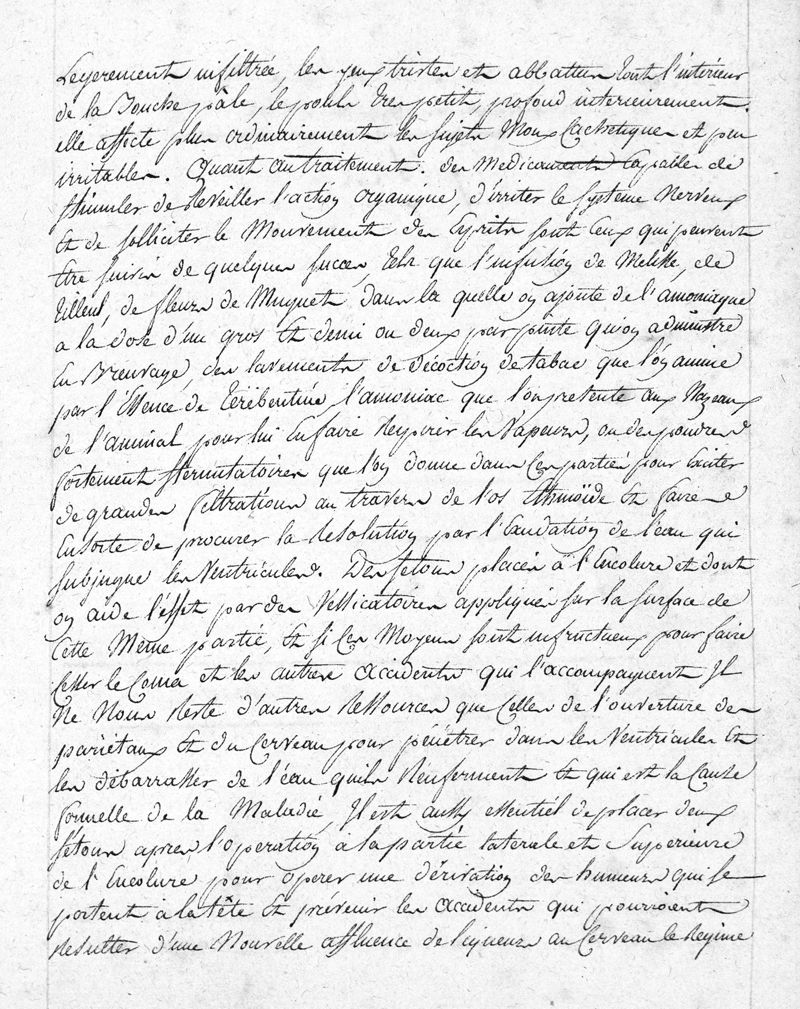 Legerement infiltrée, les yeux tristes et abbattus tout l'interieur
de la Bouche pâle, le pouls tres petit, profond interieurement.
elle affecte plus ordinairement les sujets Moux Cachetiques et peu
irritables. Quant au traitement. des Medicaments Capables de
stimuler de Reveiller l'action organique, d'irriter le systeme Nerveux
Et de solliciter le Mouvement des Esprits sont Ceux qui peuvent
Etre suivis de quelques succes, tels que l'infusion de Melisse, de
tilleul, de fleurs de Muguet dans la quelle on ajoute de l'amoniaque
a la dose d'un gros Et demi ou deux par pinte qu'on administre
En Breuvage, des lavements de décoction de tabac que l'on anime
par l'Essence de térébentine l'amoniac que l'on presente aux Nazeaux
de l'animal pour lui En faire Respirer les Vapeurs, ou des poudres
fortement sternutatoires que l'on donne dans Ces parties pour Exciter
de grandes filtrations au travers de l'os Ethmoïde Et faire
Ensorte de procurer la Resolution par l'Exudation de l'eau qui
subjugue les Ventricules. Des setons placés à l'Encolure et dont
on aide l'effet par des Vessicatoires appliqués sur la surface de
Cette Même partie, Et si Ces Moyens sont infructueux pour faire
Cesser le Coma et les autres accidents qui l'accompagnent Il
Ne Nous Reste d'autres Ressources que Celles de l'ouverture des
pariétaux Et du Cerveau pour pénétrer dans les Ventricules Et
les débarrasser de l'eau qu'ils Renferment Et qui est la Cause
formelle de la Maladie, Il est aussy essentiel de placer deux
sétons apres l'operation à la partie laterale et Superieure
de l'Encolure pour operer une dérivation des humeurs qui se
portent à la tête Et prévenir les accidents qui pourroient
Resulter d'une Nouvelle affluence de liqueurs au Cerveau le Regime